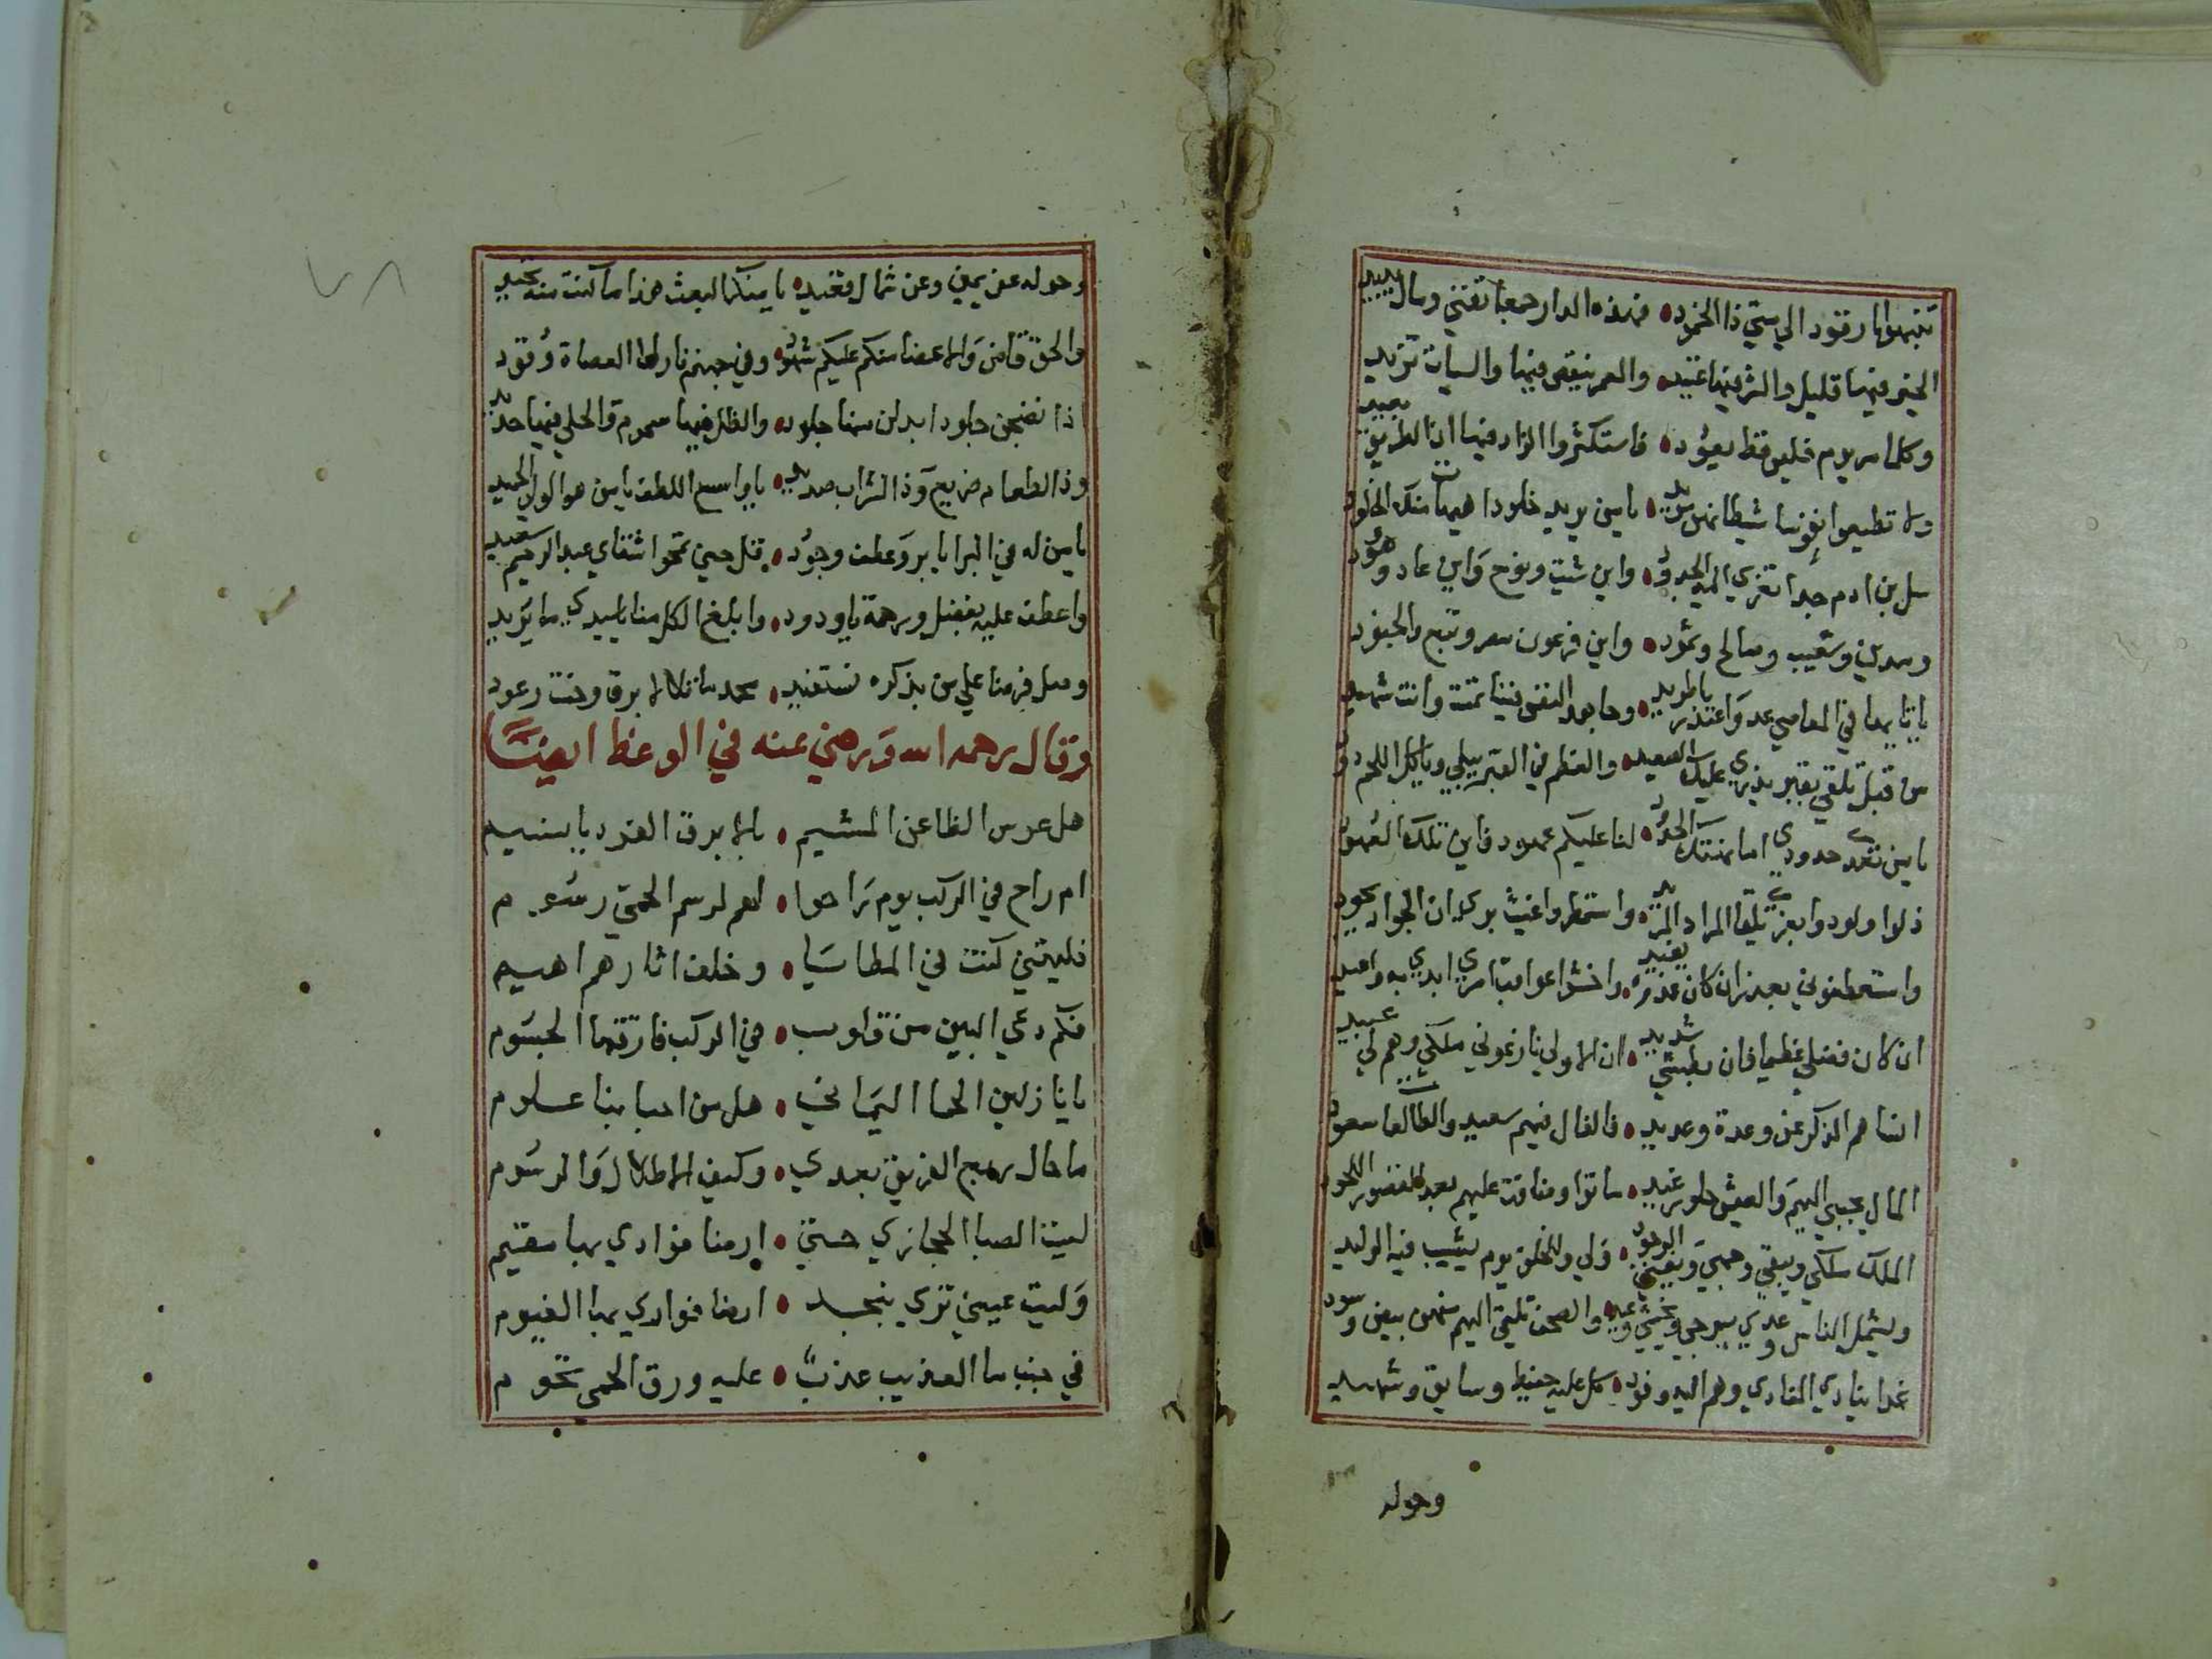 تنبهوا يا رقود الي متي ذا الخمود فهذه الدار جمعا تفني ومال يبيد
الخير فيها قليل والشر فيها عتيد والعمر ينقص فيها والسيات تزيد
وكلما مر يوم فليس قط يعود فاستكثروا الزاد فيها ان الطريق بعيد
ولا تطيعوا نفوسا شيطانهن مريد يا من يريد خلودا هيهات منك الخلود
سل بن ادم جدا تعزي اليه الجدود واين شيت ونوح واين عاد وهود
ومدين وشعيب وصالح وثمود واين فرعون مصر وتبع والجنود
يا تايها في المعاصي عد واعتذر يا طريد وجاهد النفس فينا تمت وانت شهيد
من قبل تلقي بقبر يذري عليك الصعيد والعظم في القبر يبلي وياكل اللحم دود
يا من تعدي حدودي اما نهتك الحدود لنا عليكم عهود فاين تلك العهود
ذلوا ولودوا بعزي تلقوا المراد المريد واستمطروا غيث بري ان الجواد يجود
واستعطفوني بعذر ان كان عذر يفيد واخشوا عواقب امري ابدي به واعيد
ان كان فضلي عظيما فان بطشي شديد ان الاولي نازعوني ملكي وهم لي عبيد
انساهم الذكر عن وعدة وعديد فالفال فيهم سعيد والطالعات سعود
المال يجبي اليهم والعيش حلو رغيد ماتوا وضاقت عليهم بعد القصور اللحود
الملك ملكي ويبقي وجهي ويفني الوجود ولي وللخلق يوم يشيب فيه الوليد
ويشمل الناس وعدي يرجي ويخشي وعيد والصحف تلقي اليهم منهن بيض وسود
غدا ينادي المنادي وهم اليه وفود كل عليه حفيظ وسايق وشهيد
وحوله
وحوله عن يمين وعن شمال قعيد يا منكر البعث هذا ما كنت منه تحيد
والحق قاض والاعضا منكم عليكم شهود وفي جهنم نار لها العصاة وقود
اذا نضجن جلودا بدلن منها جلود والظل فيها سموم والحلي فيها حديد
وذا الطعام ضريع وذا الشراب صديد يا واسع اللطف يا من هو الولي الحميد
يا من له في البرايا بر وعطف وجود قل حين تمحوا شقاي عبد الرحيم سعيد
واعطف عليه بفضل ورحمة يا ودود وابلغ الكل منا يا سيدي ما يريد
وصل فرضنا علي من بذكره نستفيد محمد ما تلالا برق وحنت رعود
وقال رحمه الله ورضي عنه في الوعظ ايضًا
هل عرس الظاعن المشيم بالابرق الفرد يا نسيم
ام راح في الركب يوم راحوا لهم لرسم الحمي رسوم
فليتني كنت في المطايا وخلف اثارهم اهيم
فكم دعي البين من قلوب في الركب فارقها الجسوم
يا نازلين الحما اليماني هل من احبابنا علوم
ما حال ربع الفريق بعدي وكيف الاطلال والرسوم
ليت الصبا الحجازي حتي ارضا فوادي بها مقيم
وليت عيني تري بنجد ارضا فوادي بها الغيوم
في جنب ما العذيب عذب عليه ورق الحمي تحوم